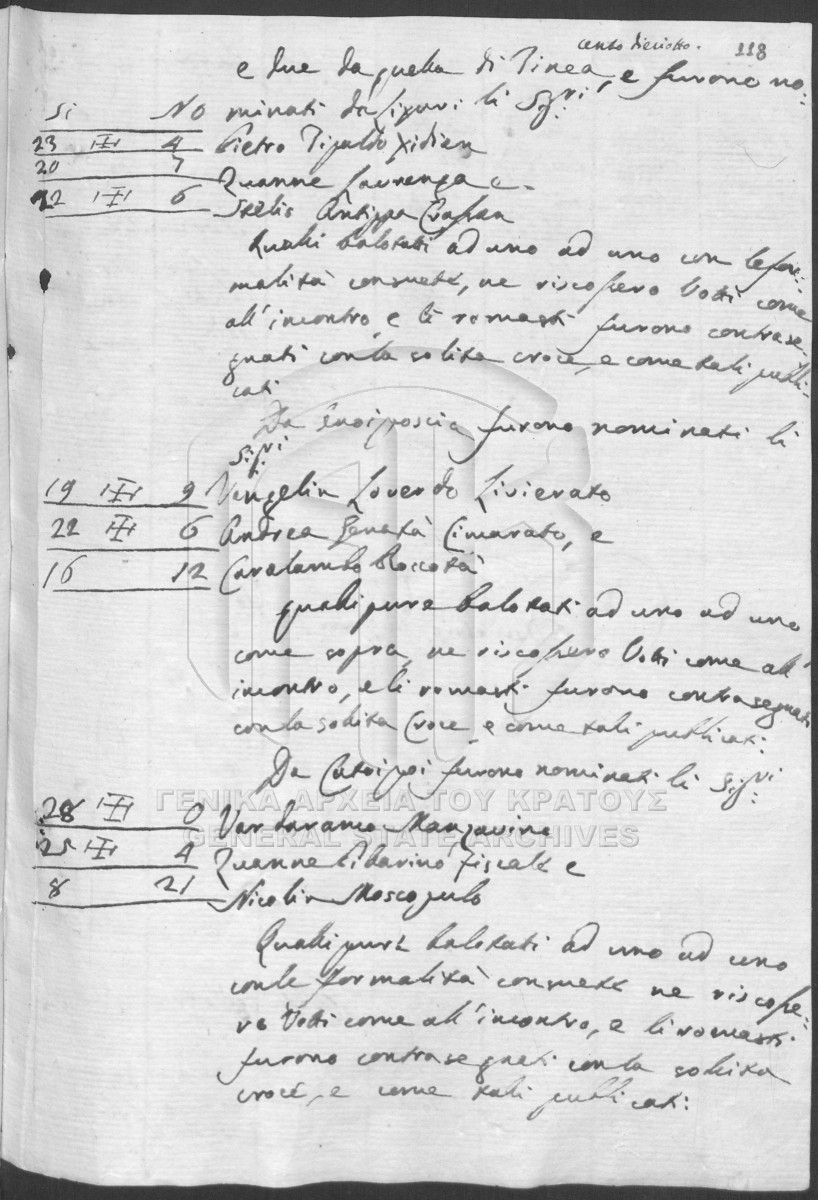 cento dieciotto. 118
e due da quella di Tinea, e furono no:
Si No minati da Liguri li Sig:ri
23 4 Pietro Tipaldo Xidian
20 7 Zuanne Laurenza e
22 6 Stelio Antippa
Quali balotati ad uno ad uno con le for:
malità consuete, ne riscossero Votti come
all'incontro, e li romasti furono contrase:
gnati con la solita croce, e come tali publi:
cati
Da furono nominati li
Sig:ri
19 9 Vangelin Loverdo Livierato
22 6 Andrea Cimarato, e
16 12 Caralambo
quali pure balotati ad uno ad uno
come sopra, ne riscossero Votti come all'
incontro, e li romasti furono contrasegnati
con la solita Croce, e come tali publicati:
Da furono nominati li Sig:ri
ΓΕΝΙΚΑ ΑΡΧΕΙΑ ΤΟΥ ΚΡΑΤΟΥΣ
GENERAL STATE ARCHIVES
28 0 Vardaramo Manzavino
25 4 Zuanne Fiscale e
8 21 Nicolin Moscopulo
Quali pure balotati ad uno ad uno
con le formalità consuete ne riscosse:
ro Votti come all'incontro, e li romasti
furono contrasegnati con la solita
croce, e come tali publicati: